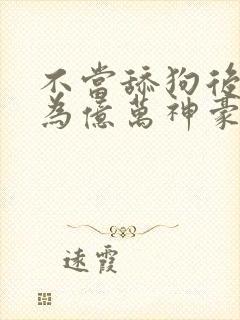 不當舔狗後
為億萬神豪
遠霞